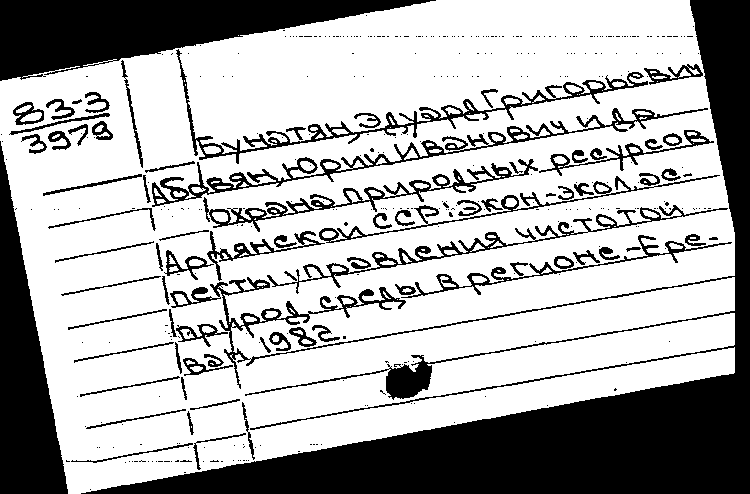 83-3
3979
Бунатян, Эдуард Григорьевич
Абовян, Юрий Иванович и др.
Охрана природных ресурсов
Армянской ССР: Экон.-экол. ас-
пекты управления чистотой
природ. среды в регионе.-Ере-
ван, 1982.